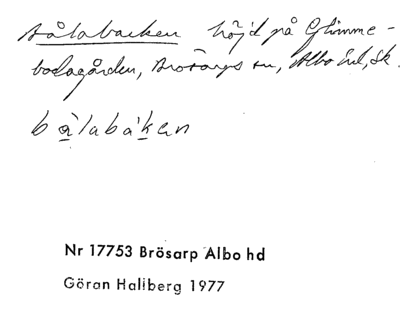 Bålabacken höjd på Glimme-
bodagården, Brösarps sn, Albo hd, Sk.
bålabakan
Nr 17753 Brösarp Albo hd
Göran Hallberg 1977